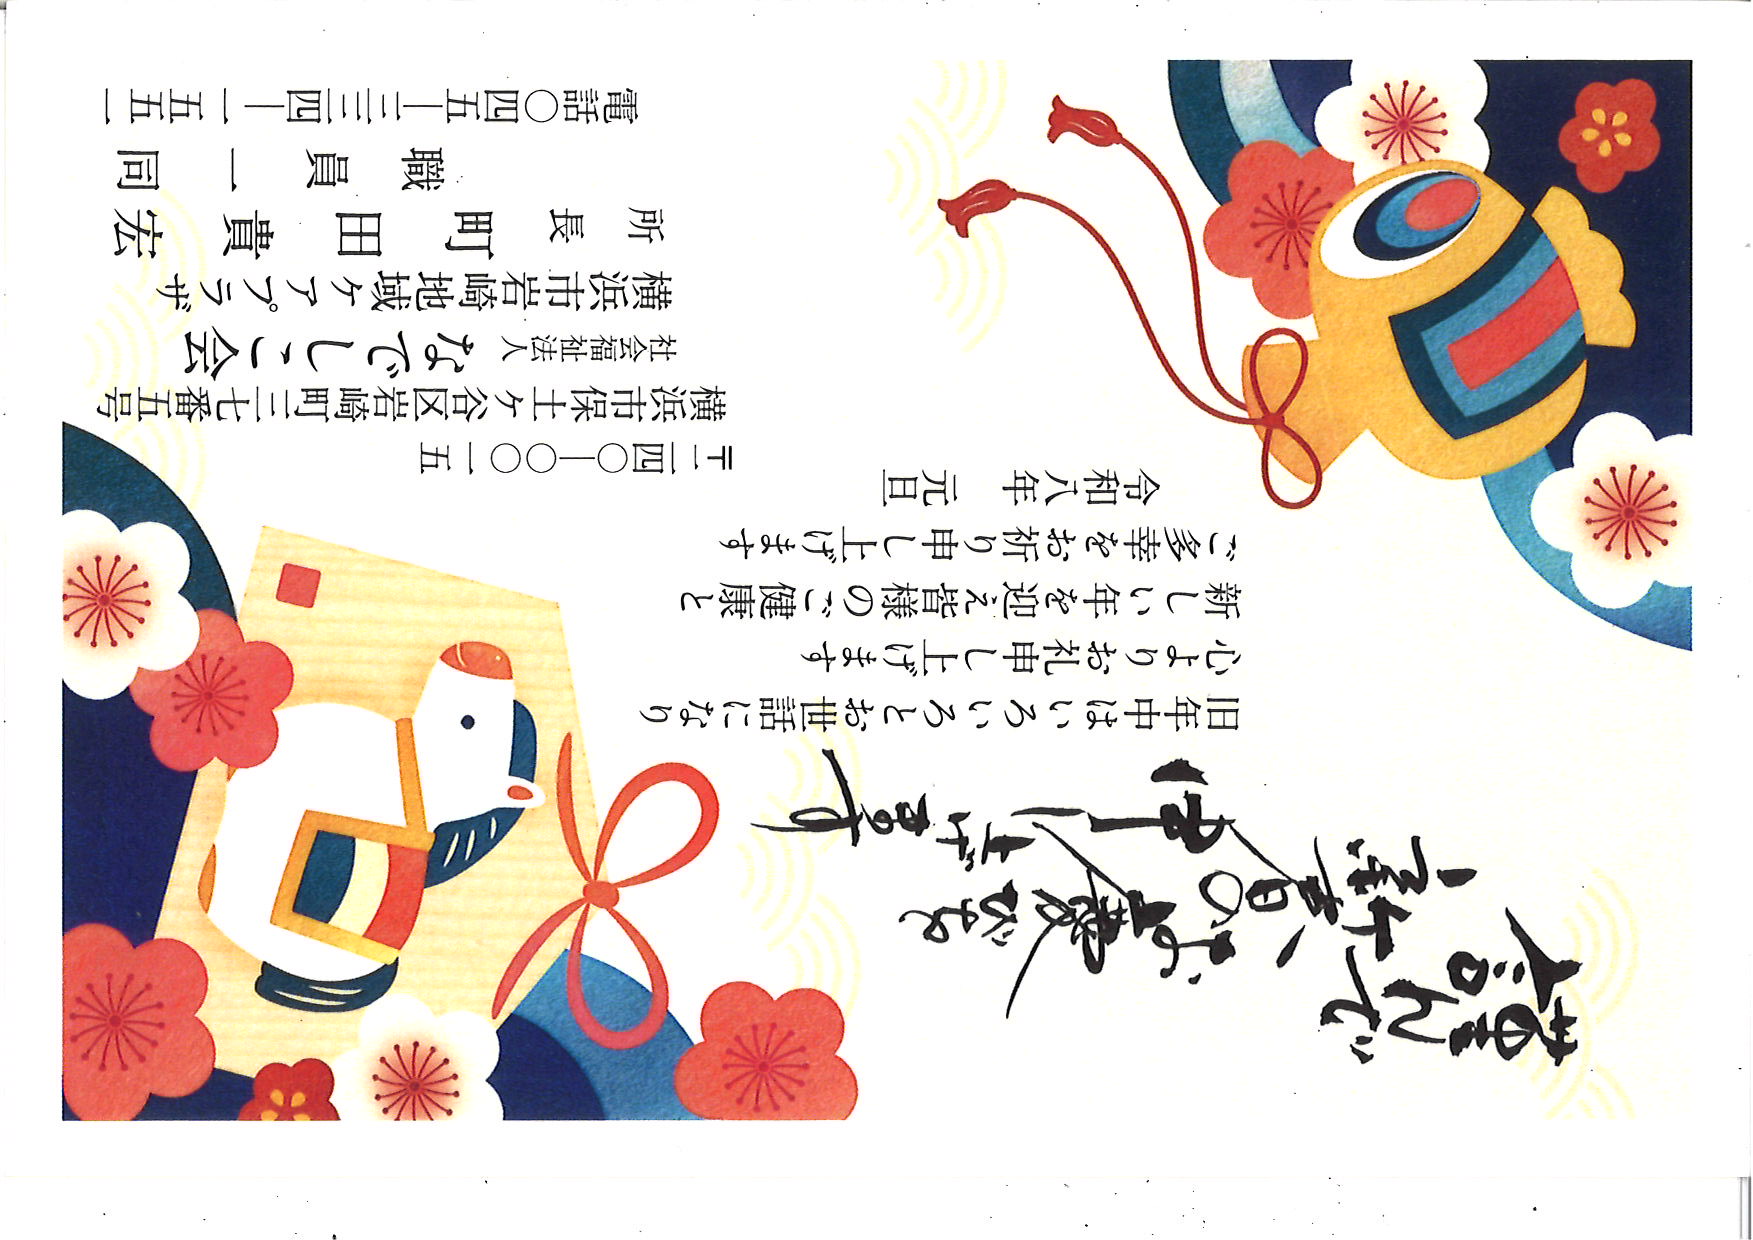 謹んで
新春の
お慶びを
申し上げます
旧年中はいろいろとお世話になり
心よりお礼申し上げます
新しい年を迎え皆様のご健康と
ご多幸をお祈り申し上げます
令和八年 元旦
〒二四〇―〇〇一五
横浜市保土ヶ谷区岩崎町三七番五号
社会福祉法人 なでしこ会
横浜市岩崎地域ケアプラザ
所長 町田貴宏
職員一同
電話〇四五―三三四―一五五一